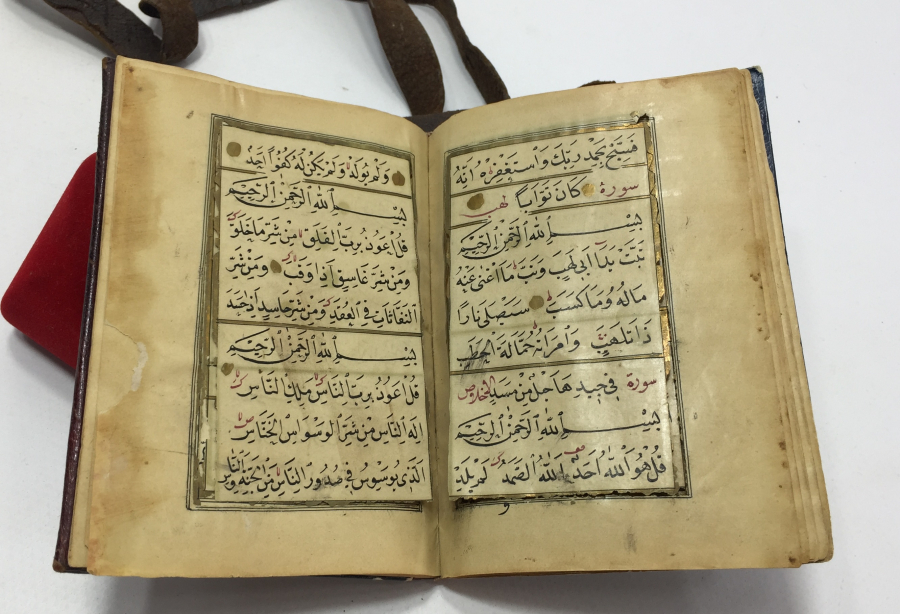 فسبح بحمد ربك واستغفره انه
سورة كان توابا لهب
بسم الله الرحمن الرحيم
تبت يدا ابى لهب وتب ما اغنى عنه
ماله وما كسب سيصلى نارا
ذات لهب وامراته حمالة الحطب
سورة فى جيدها حبل من مسد الاخلاص
بسم الله الرحمن الرحيم
قل هو الله احد الله الصمد لم يلد
ولم يولد ولم يكن له كفوا احد
بسم الله الرحمن الرحيم
قل اعوذ برب الفلق من شر ما خلق
ومن شر غاسق اذا وقب ومن شر
النفاثات فى العقد ومن شر حاسد اذا حسد
بسم الله الرحمن الرحيم
قل اعوذ برب الناس ملك الناس
اله الناس من شر الوسواس الخناس
الذى يوسوس فى صدور الناس من الجنة والناس